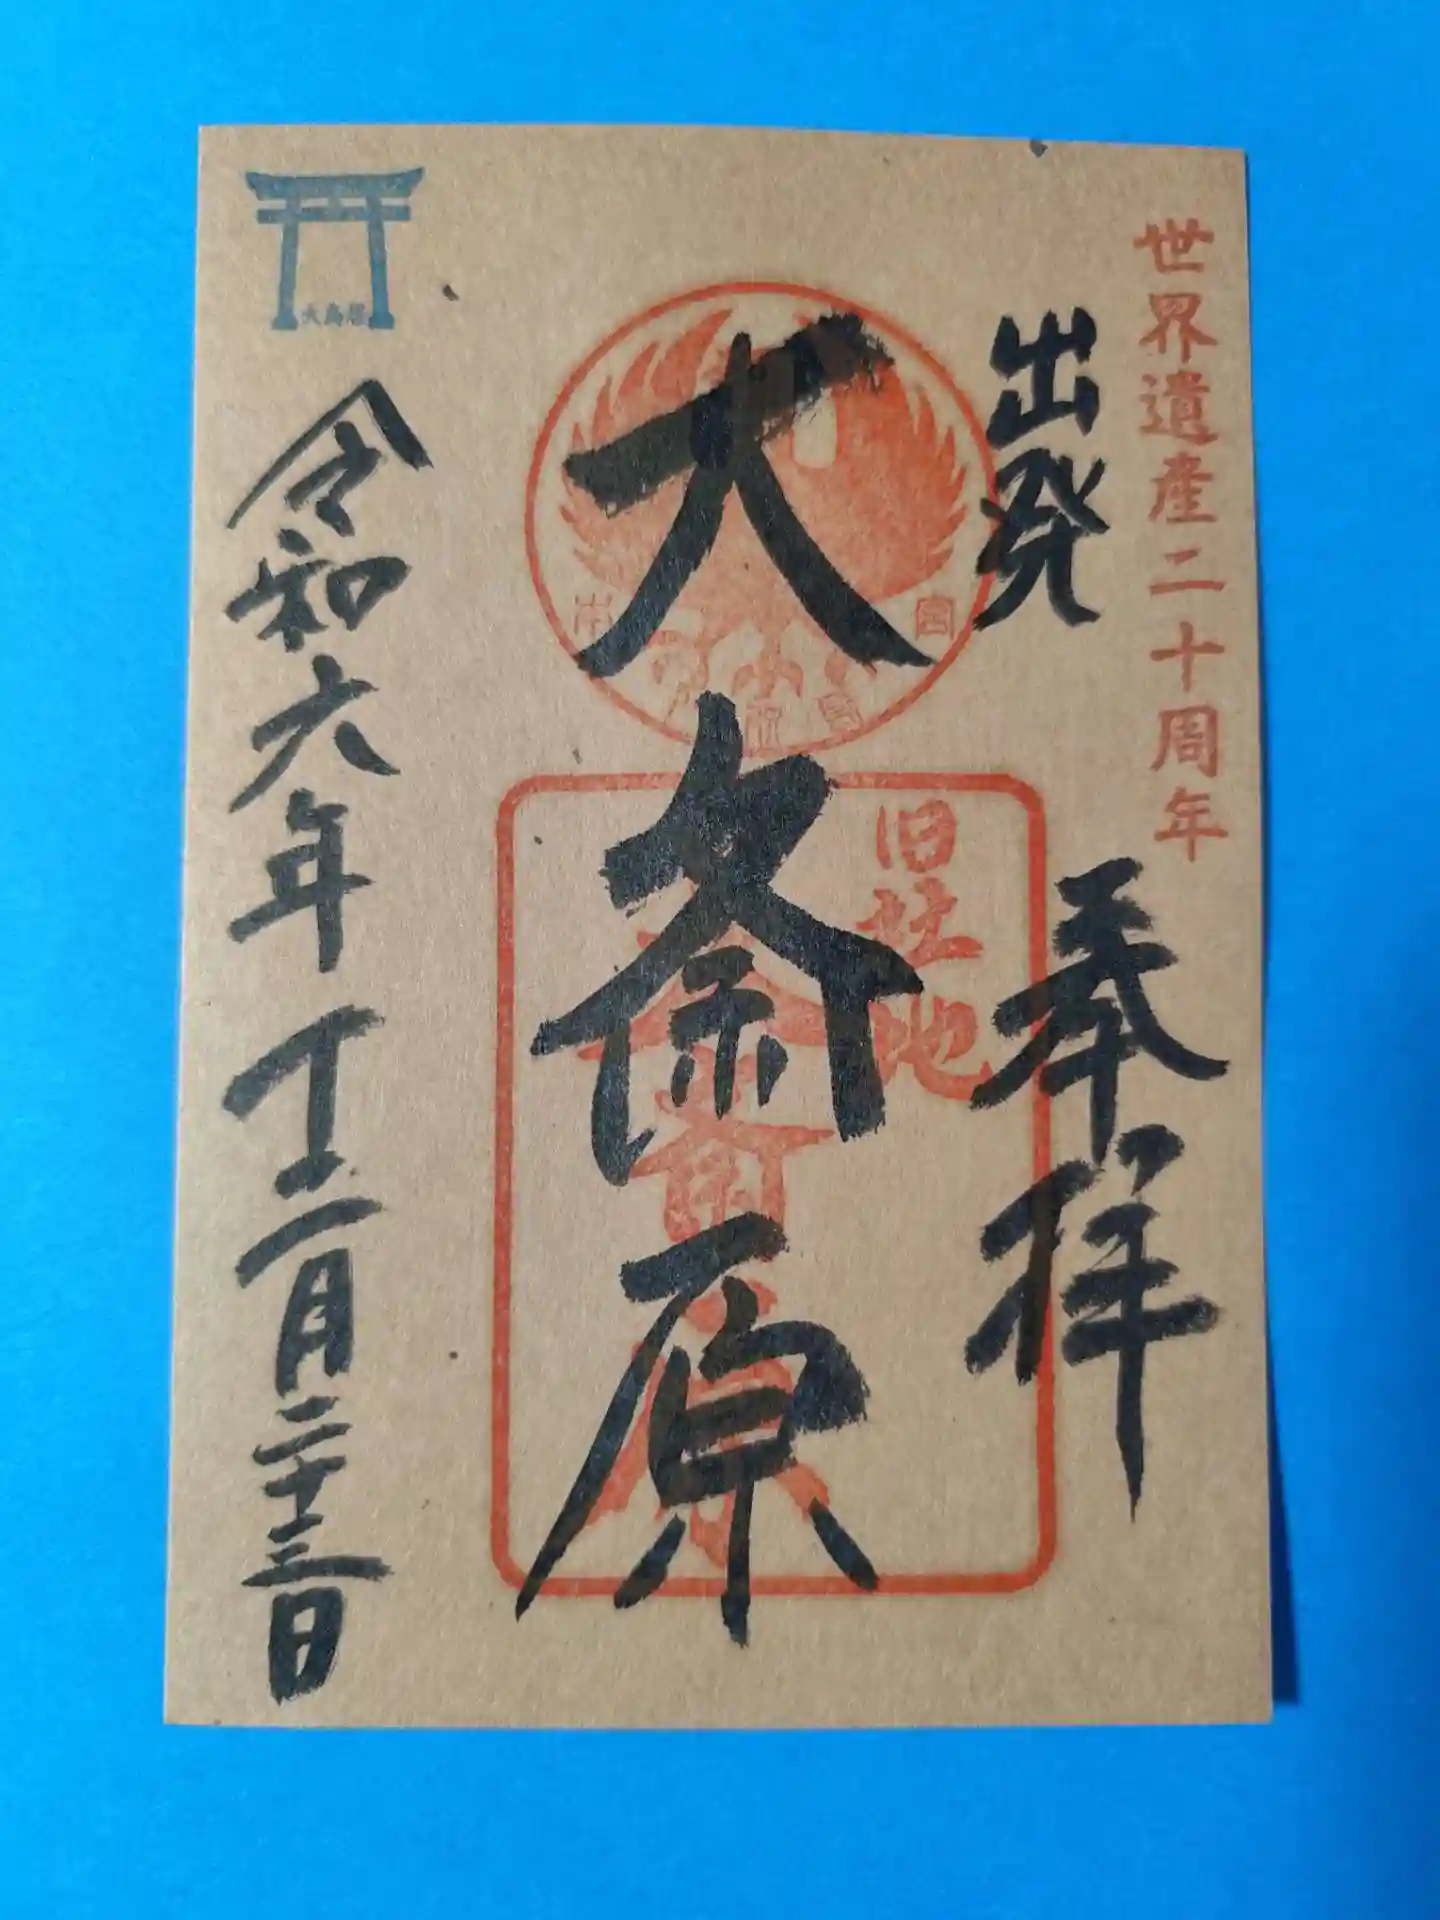 世界遺産二十周年
出発
奉拝
大斎原
旧社地
大斎原
本
宮
大鳥居
令和六年十二月二十三日